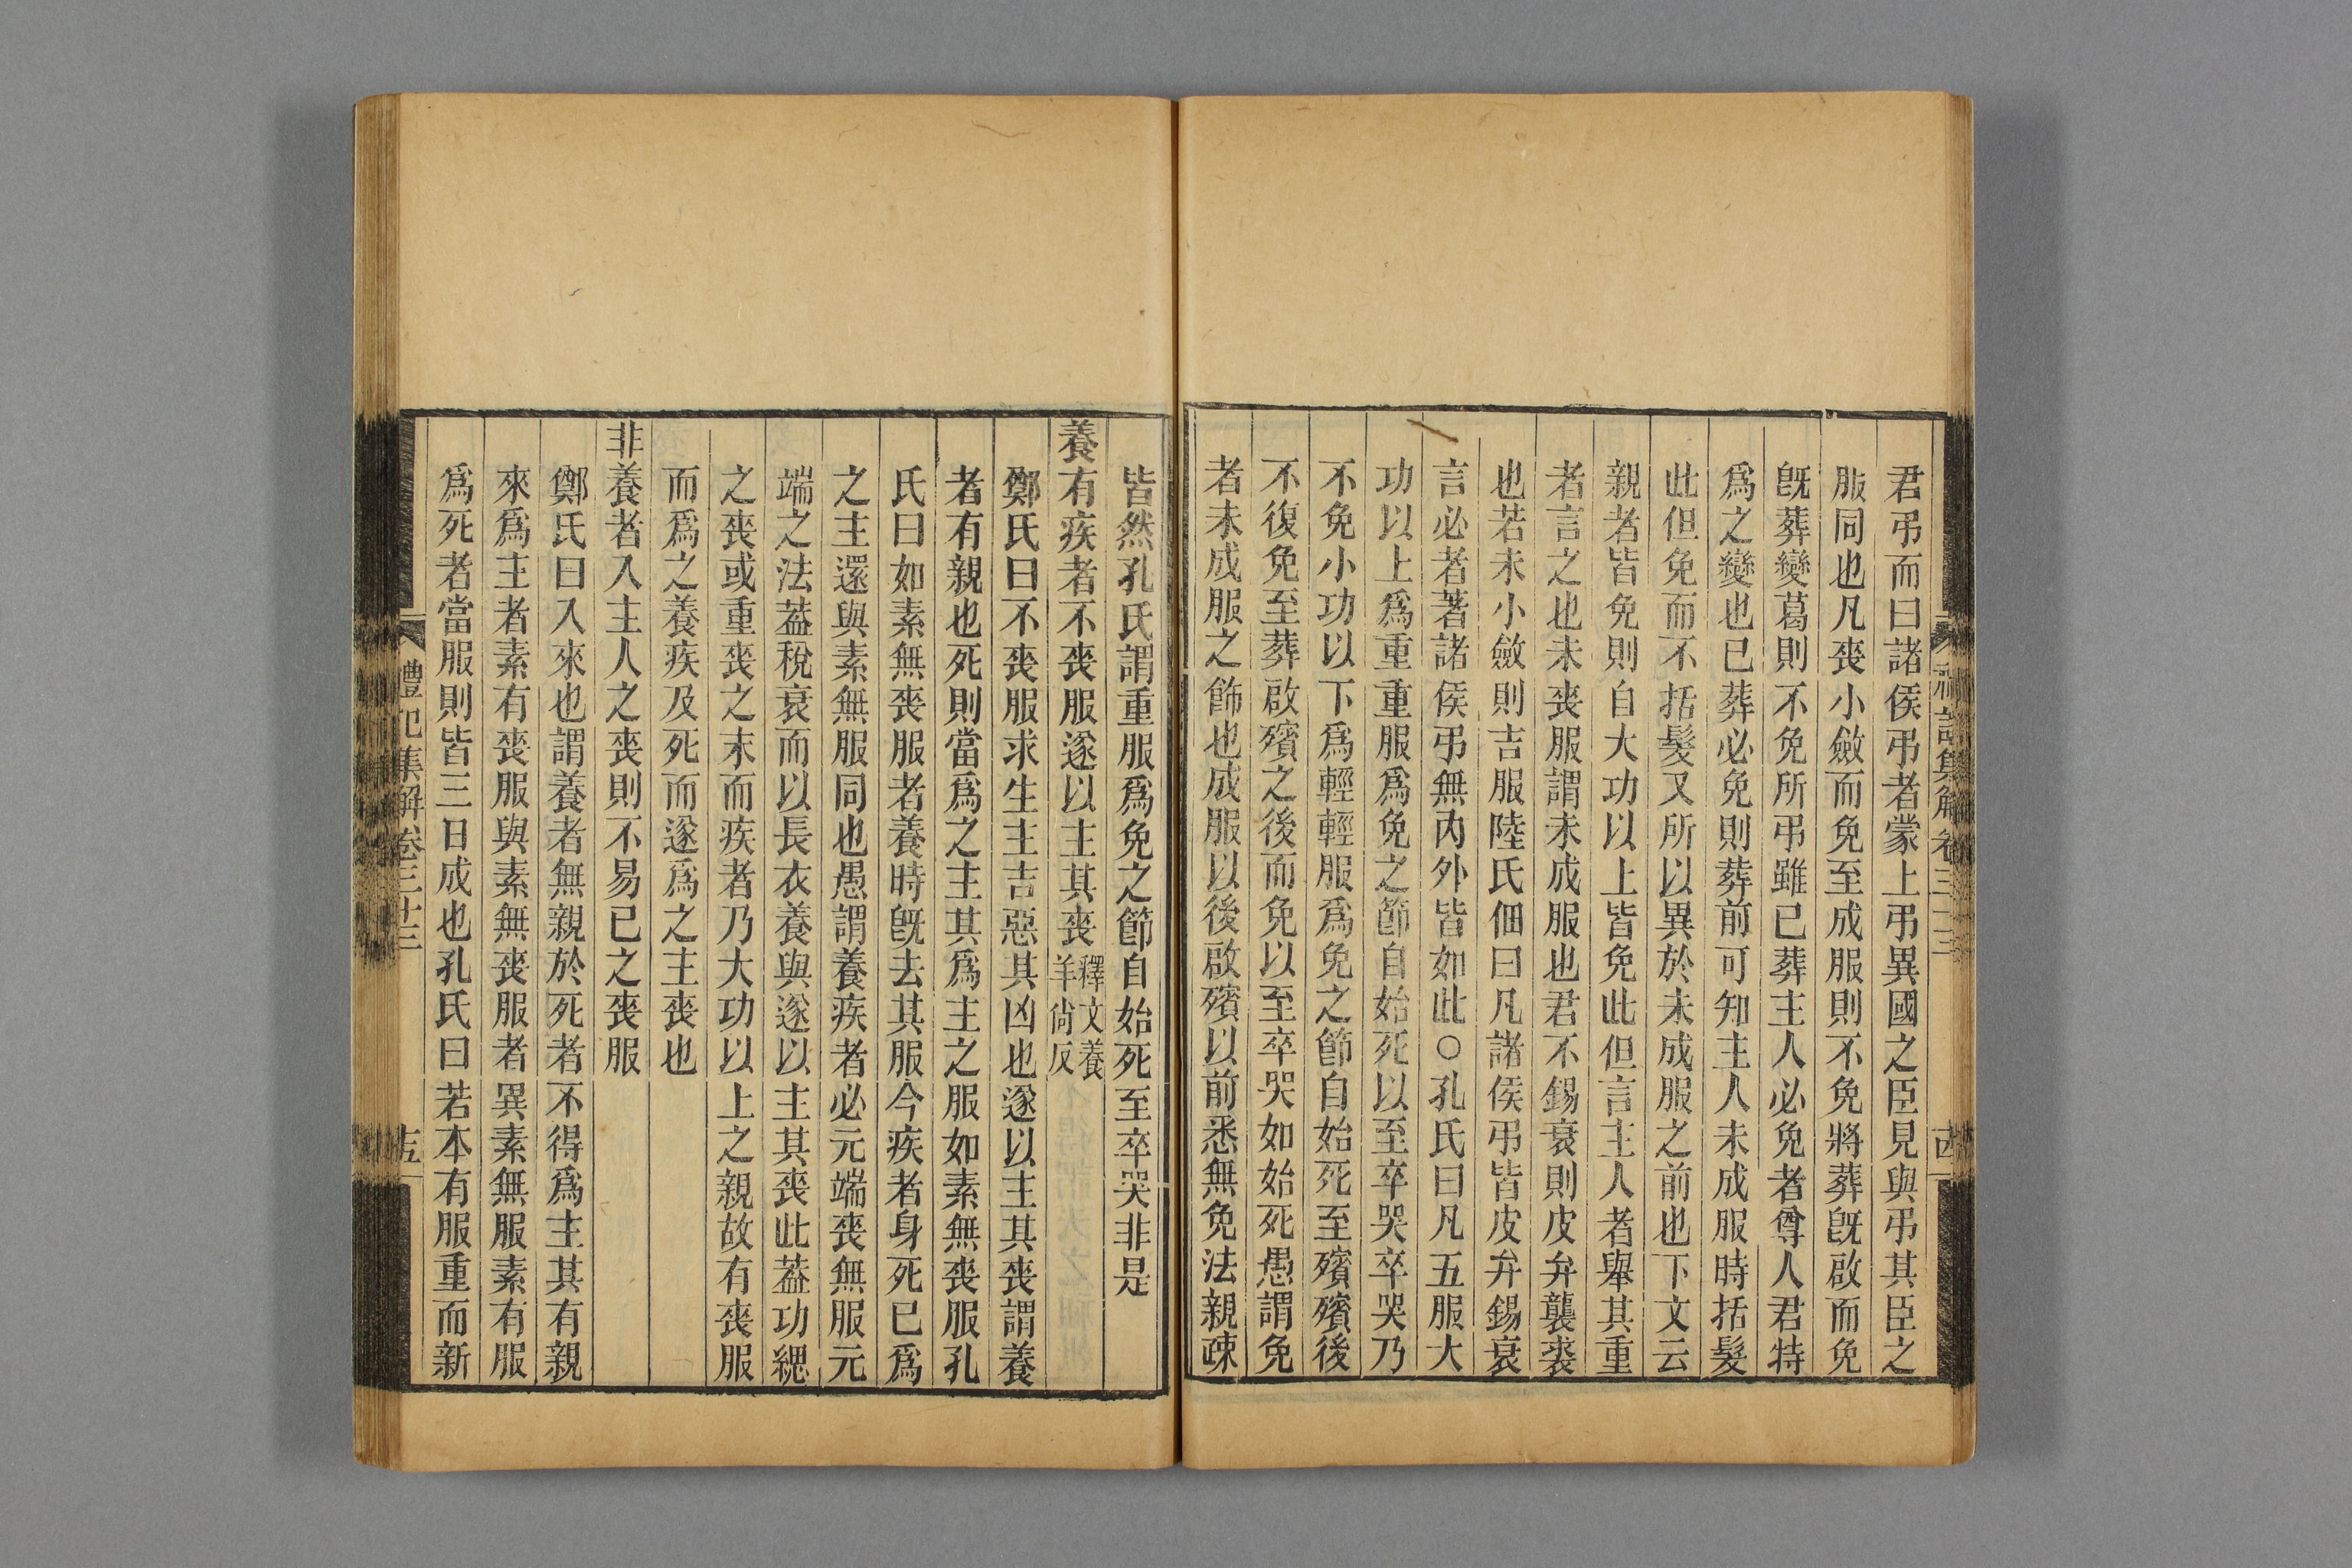 君弔而曰諸侯弔者蒙上弔異國之臣見與弔其臣之
服同也凡喪小斂而免至成服則不免將葬旣啟而免
旣葬變葛則不免所弔雖已葬主人必免者尊人君特
爲之變也已葬必免則葬前可知主人未成服時括髮
此但免而不括髮又所以異於未成服之前也下文云
親者皆免則自大功以上皆免此但言主人者舉其重
者言之也未喪服謂未成服也君不錫衰則皮弁襲裘
也若未小斂則吉服陸氏佃曰凡諸侯弔皆皮弁錫衰
言必者著諸侯弔無內外皆如此○孔氏曰凡五服大
功以上爲重重服爲免之節自始死以至卒哭卒哭乃
不免小功以下爲輕輕服爲免之節自始死至殯殯後
不復免至葬啟殯之後而免以至卒哭如始死愚謂免
者未成服之飾也成服以後啟殯以前悉無免法親疎
皆然孔氏謂重服爲免之節自始死至卒哭非是
養有疾者不喪服遂以主其喪釋文養羊尙反
鄭氏曰不喪服求生主吉惡其凶也遂以主其喪謂養
者有親也死則當爲之主其爲主之服如素無喪服孔
氏曰如素無喪服者養時旣去其服今疾者身死已爲
之主還與素無服同也愚謂養疾者必元端喪無服元
端之法葢稅衰而以長衣養與遂以主其喪此葢功緦
之喪或重喪之末而疾者乃大功以上之親故有喪服
而爲之養疾及死而遂爲之主喪也
非養者入主人之喪則不易已之喪服
鄭氏曰入來也謂養者無親於死者不得爲主其有親
來爲主者素有喪服與素無喪服者異素無服素有服
爲死者當服則皆三日成也孔氏曰若本有服重而新
禮記集解卷三十三